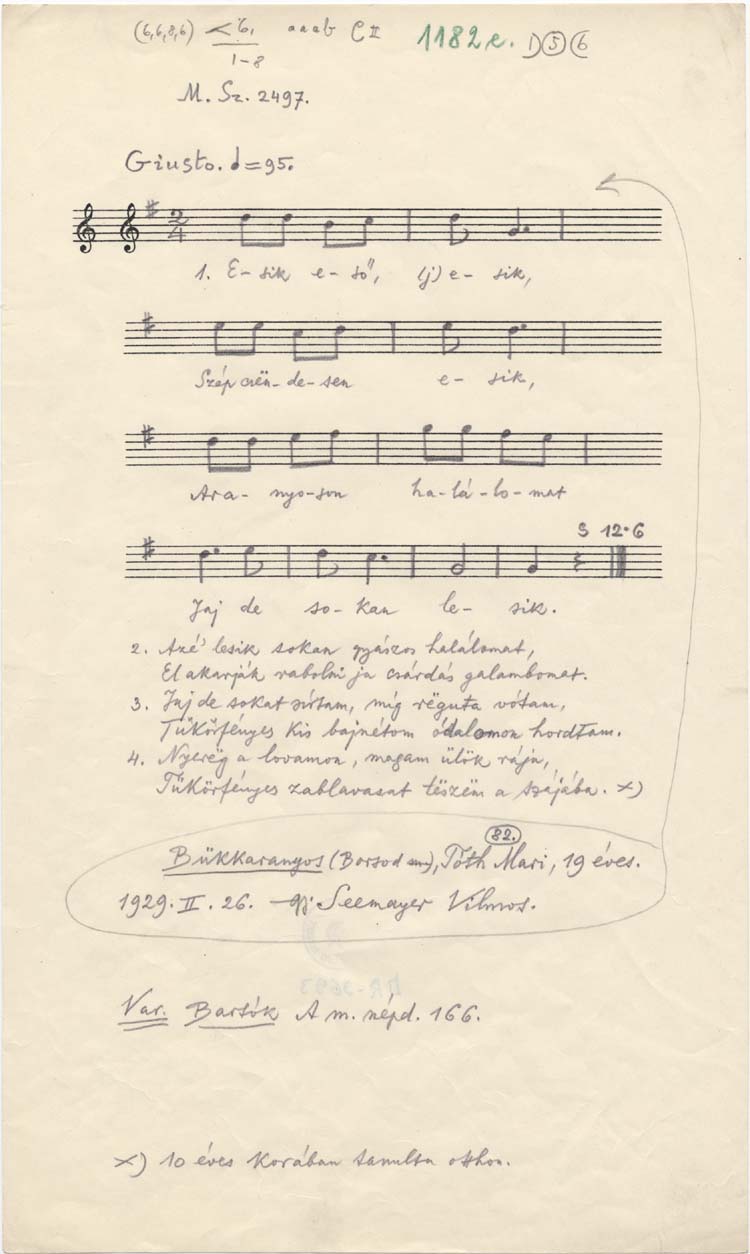 (6,6,8,6) <6, aaab C II 1182e. D 5 6
1-8
M. Sz. 2497.
Giusto. ♩=95.
2
4
1. E- sik e- ső, (j) e- sik,
Szép csën- de- sen e- sik,
Ara- nyo- son ha- lá- lo- mat
S 12.6
Jaj de so- kan le- sik.
2. Azé' lesik sokan gyászos halálomat,
El akarják rabolni ja csárdás galambomat.
3. Jaj de sokat sírtam, míg rëguta vótam,
Tükörfényes kis bajnétom ódalamon hordtam.
4. Nyerëg a lovamon, magam ülök rája,
Tükörfényes zablavasat tëszëm a szájába. x)
82.
Bükkaranyos (Borsod m.), Tóth Mari, 19 éves.
1929. II. 26. gy. Seemayer Vilmos.
Var. Bartók A m. népd. 166.
x) 10 éves korában tanulta otthon.